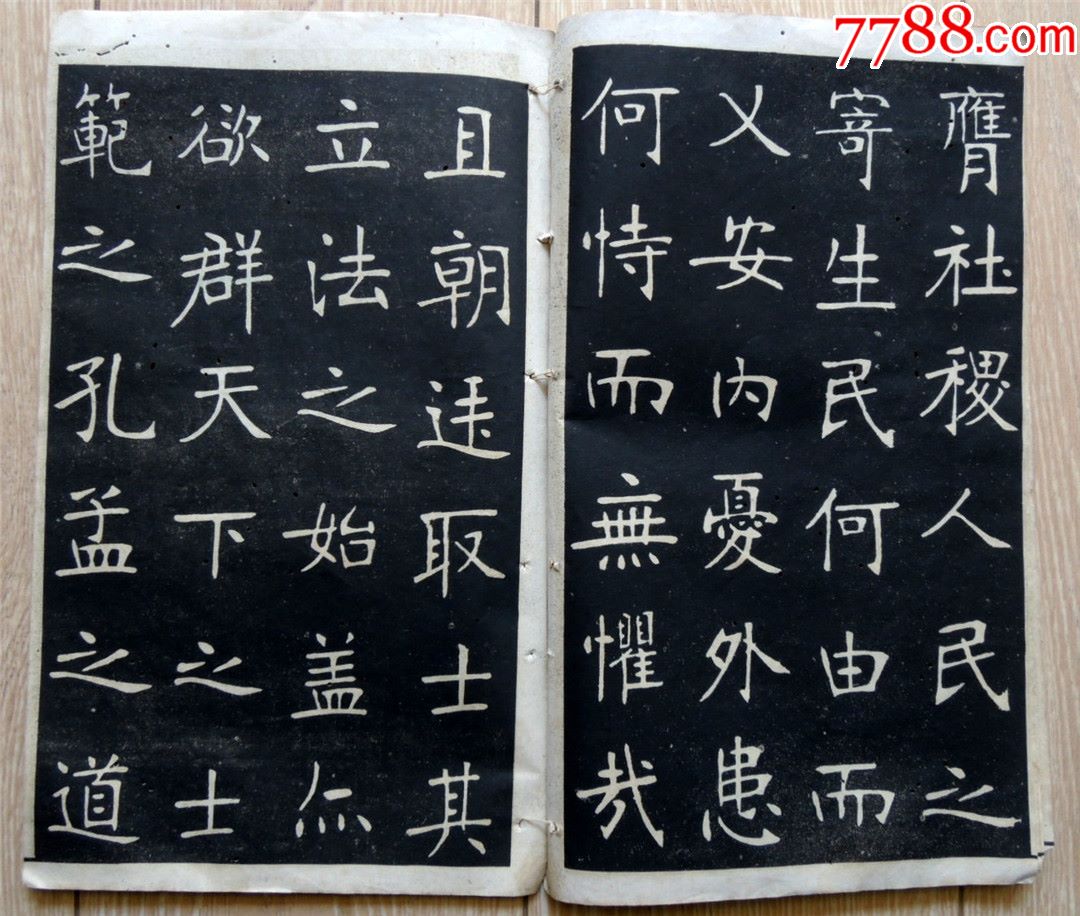 7788.com
膺社稷人民之
寄生民何由而
乂安内憂外患
何恃而無懼哉
且朝廷取士其
立法之始盖亦
欲群天下之士
範之孔孟之道